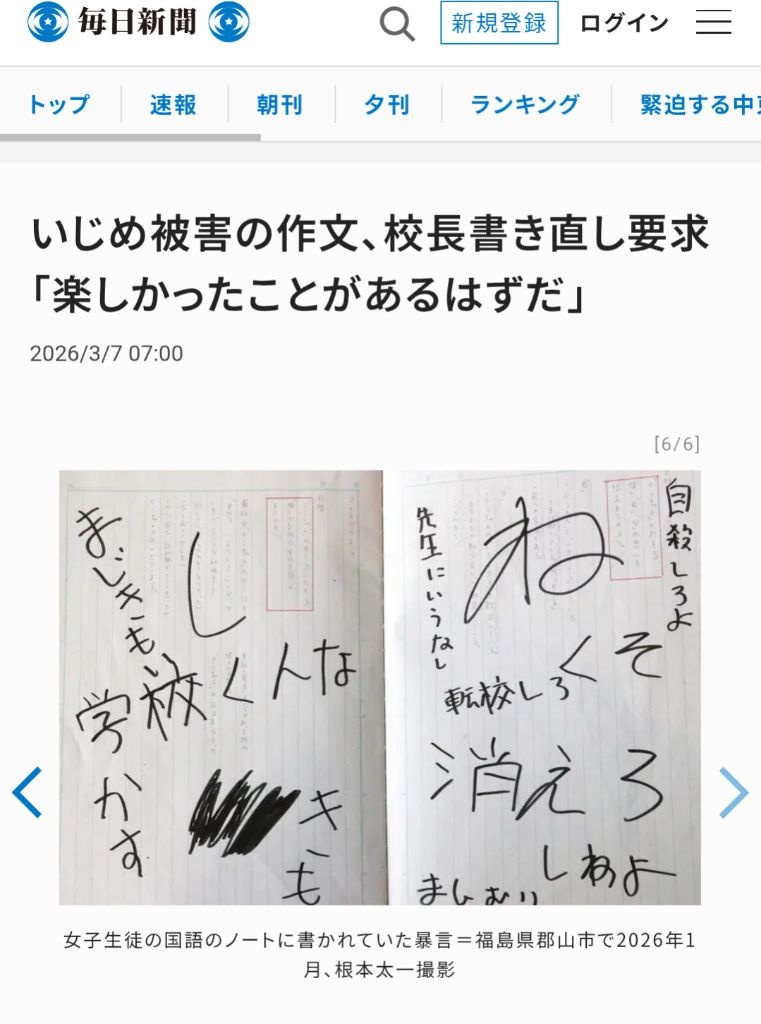 毎日新聞
新規登録
ログイン
トップ
速報
朝刊
夕刊
ランキング
緊迫する中
いじめ被害の作文、校長書き直し要求
「楽しかったことがあるはずだ」
2026/3/7 07:00
[6/6]
自殺しろよ
ね
先生にいうなし
くそ
転校しろ
消えろ
しねよ
まじむり
し
まじきもい
学校くんな
かす
キも
女子生徒の国語のノートに書かれていた暴言＝福島県郡山市で2026年1
月、根本太一撮影